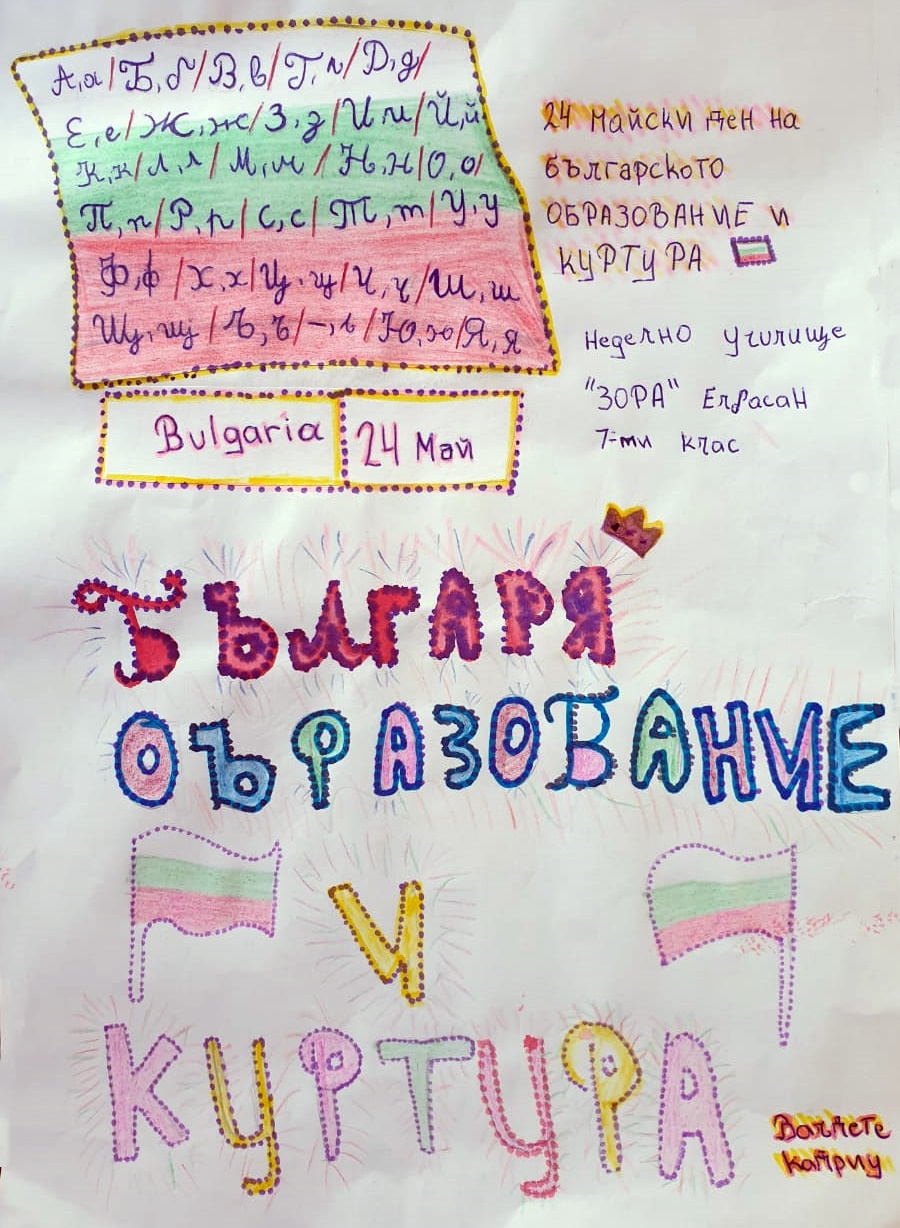 А,а/Б,б/В,в/Г,г/Д,д/
Е,е/Ж,ж/З,з/И,и/Й,й
К,к/Л,л/М,м/Н,н/О,о/
П,п/Р,р/С,с/Т,т/У,у
Ф,ф/Х,х/Ц,ц/Ч,ч/Ш,ш
Щ,щ/Ъ,ъ/–,ь/Ю,ю/Я,я
24 майски ден на
българското
ОБРАЗОВАНИЕ и
КУРТУРА
Неделно училище
"ЗОРА" Елбасан
7-ми клас
Bulgaria
24 Май
БЪЛГАРЯ
ОЪРАЗОВАНИЕ
И
КУРТУРА